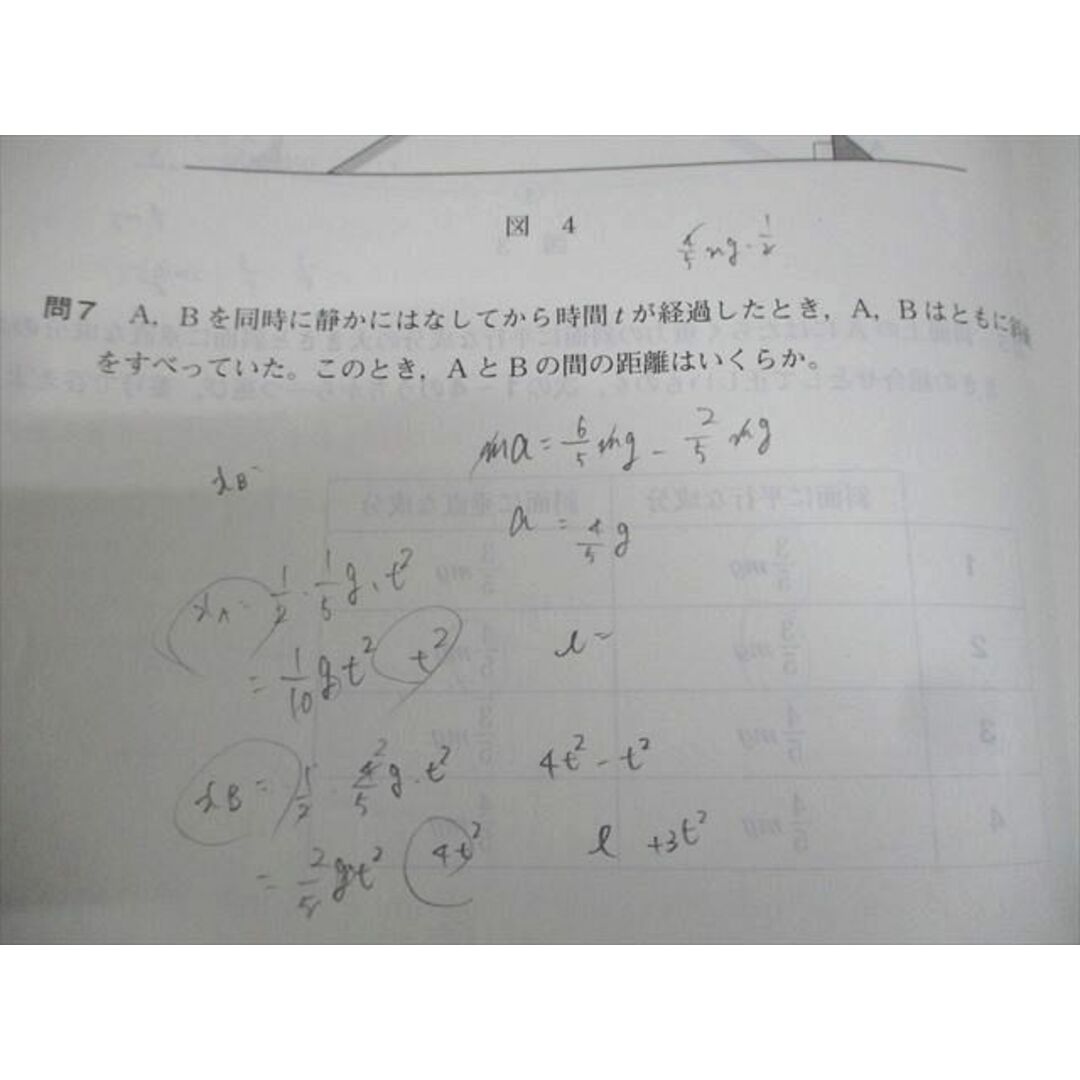 図 4
4/5 mg・1/2
問7 A，Bを同時に静かにはなしてから時間tが経過したとき，A，Bはともに斜面
をすべっていた。このとき，AとBの間の距離はいくらか。
ma = 6/5 mg - 2/5 mg
x_B =
a = 4/5 g
x_A = 1/2・1/5 g・t²
= 1/10 gt² t²
l =
x_B = 1/2・4/5 g・t²
4t² - t²
= 2/5 gt² 4t²
l + 3t²
斜面に平行な成分 斜面に垂直な成分
1 3/5 mg 3/5 mg
2 3/5 mg
3 4/5 mg 3/5 mg
4 4/5 mg